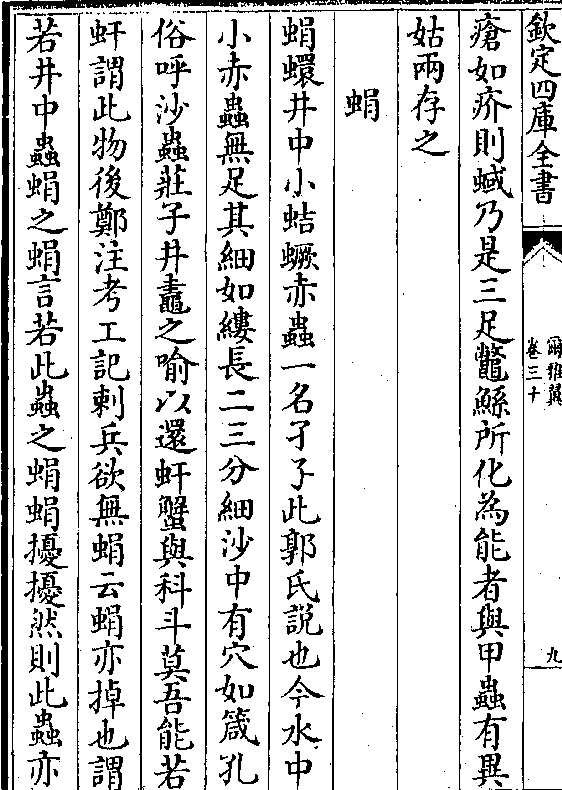 欽定四庫全書
爾雅翼
卷三十
九
瘡如疥則蜮乃是三足鼈鯀所化為能者與甲蟲有異
姑兩存之
蜎
蜎蠉井中小蛣蟩赤蟲一名孑孓此郭氏說也今水中
小赤蟲無足其細如縷長二三分細沙中有穴如箴孔
俗呼沙蟲莊子井鼃之喻以還虷蟹與科斗莫吾能若
虷謂此物後鄭注考工記刺兵欲無蜎云蜎亦掉也謂
若井中蟲蜎之蜎言若此蟲之蜎蜎擾擾然則此蟲亦